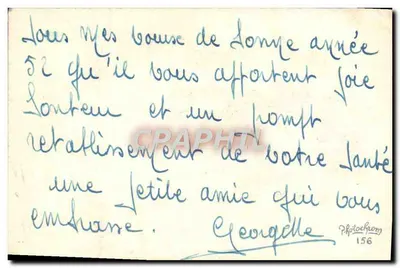 Tous mes voeux de bonne année
52 qu'il vous apportent joie
bonheur et un prompt
retablissement de votre santé
une petite amie qui vous
embrasse. Georgette
CRAPHT
Photochrom
156